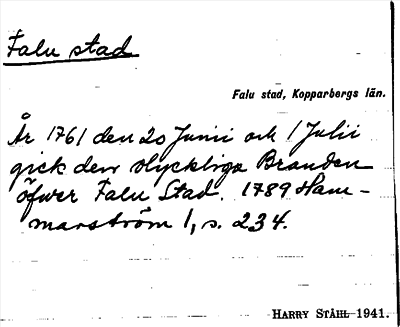 Falu stad
Falu stad, Kopparbergs län.
År 1761 den 20 Junii och 1 Julii
gick den olyckliga Branden
öfwer Falu Stad. 1789 Ham-
marström 1, s. 234.
HARRY STÅHL 1941.